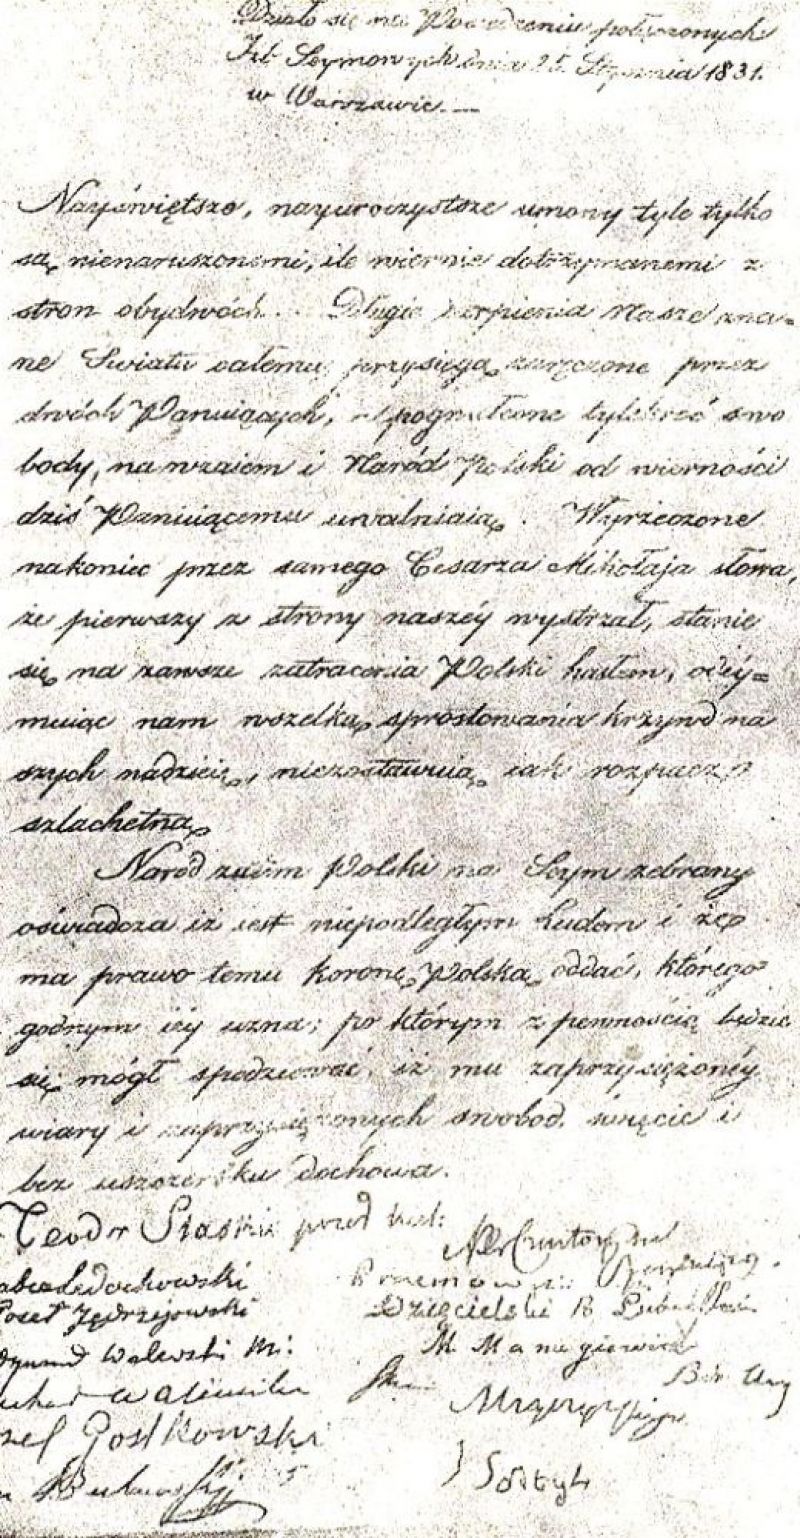 Działo się na Posiedzeniu połączonych
Izb Seymowych dnia 25. Stycznia 1831.
w Warszawie. —
Nayświętsze, nayuroczystsze umowy tyle tylko
są nienaruszonemi, ile wiernie dotrzymanemi z
stron obydwóch. Długie cierpienia Nasze zna=
ne Światu całemu, przysięgą zaręczone przez
dwóch Panuiących, a pogwałcone tylekroć swo
body, na wzaiem i Naród Polski od wierności
dziś Panuiącemu uwalniaią. Wyrzeczone
nakoniec przez samego Cesarza Mikołaja słowa,
że pierwszy z strony naszéy wystrzał, stanie
się na zawsze zatracenia Polski hasłem, odey=
muiąc nam wszelką sprostowania krzywd na
szych nadzieię, niezostawuią iak rozpacz
szlachetną
Naród zatem Polski na Seym zebrany
oświadcza iż iest niepodległym Ludem i że
ma prawo temu koronę Polską oddać, którego
godnym iéy uzna; po którym z pewnością będzie
się mógł spodziewać, iż mu zaprzysiężonéy
wiary i zaprzysiężonych swobod. święcie i
bez uszczerbku dochowa.
Teodor
Ledochowski
Poseł Jędrzejowski
Walewski
Gostkowski
Dzięcielski
Sołtyk